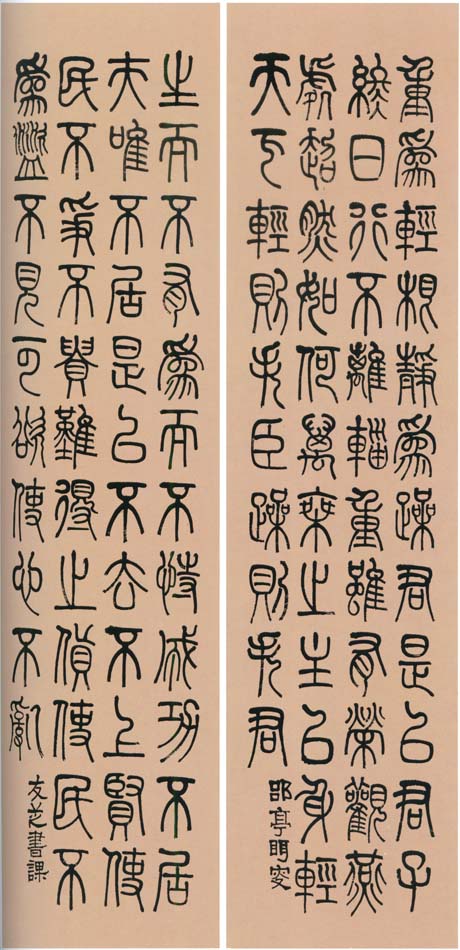 重為輕根靜為躁君是以君子
終日行不離輜重雖有榮觀燕
處超然如何萬乘之主以身輕
天下輕則失臣躁則失君
郘亭眲叟
生而不有為而不恃成功不居
夫唯不居是以不去不上賢使
民不爭不貴難得之貨使民不
為盜不見可欲使心不亂
友芝書課